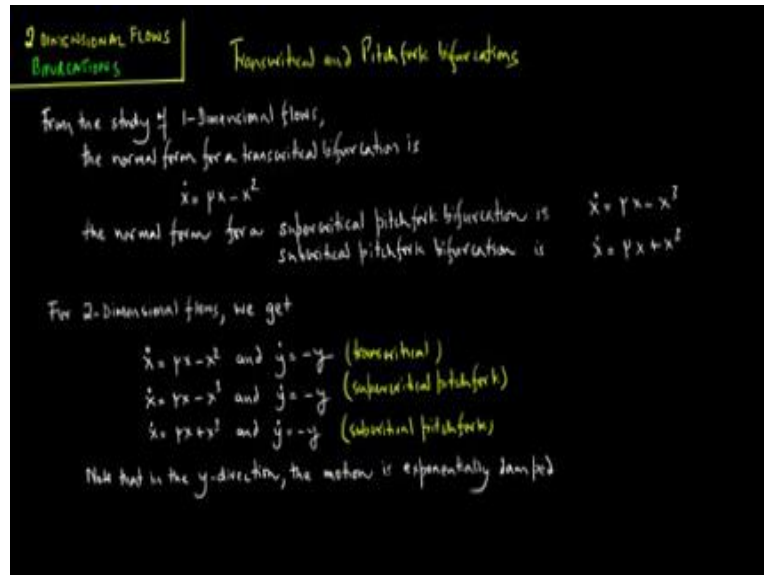 2 DIMENSIONAL FLOWS
BIFURCATIONS
Transcritical and Pitchfork bifurcations
From the study of 1-Dimensional flows,
the normal form for a transcritical bifurcation is
ẋ = μx - x²
the normal form for a supercritical pitchfork bifurcation is ẋ = μx - x³
subcritical pitchfork bifurcation is ẋ = μx + x³
For 2-Dimensional flows, we get
ẋ = μx - x² and ẏ = -y (transcritical)
ẋ = μx - x³ and ẏ = -y (supercritical pitchfork)
ẋ = μx + x³ and ẏ = -y (subcritical pitchfork)
Note that in the y-direction, the motion is exponentially damped